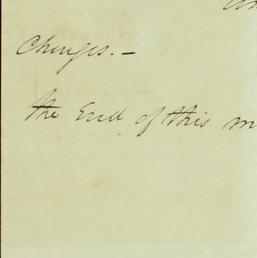 Charges.—
the End of this m